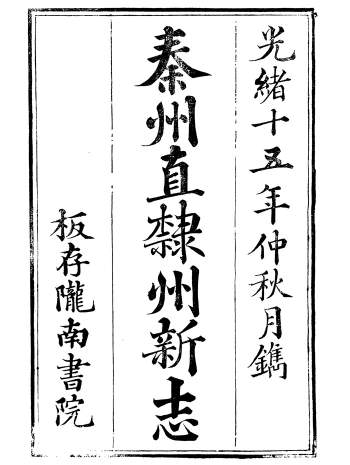 光緒十五年仲秋月鐫
秦州直隸州新志
板存隴南書院